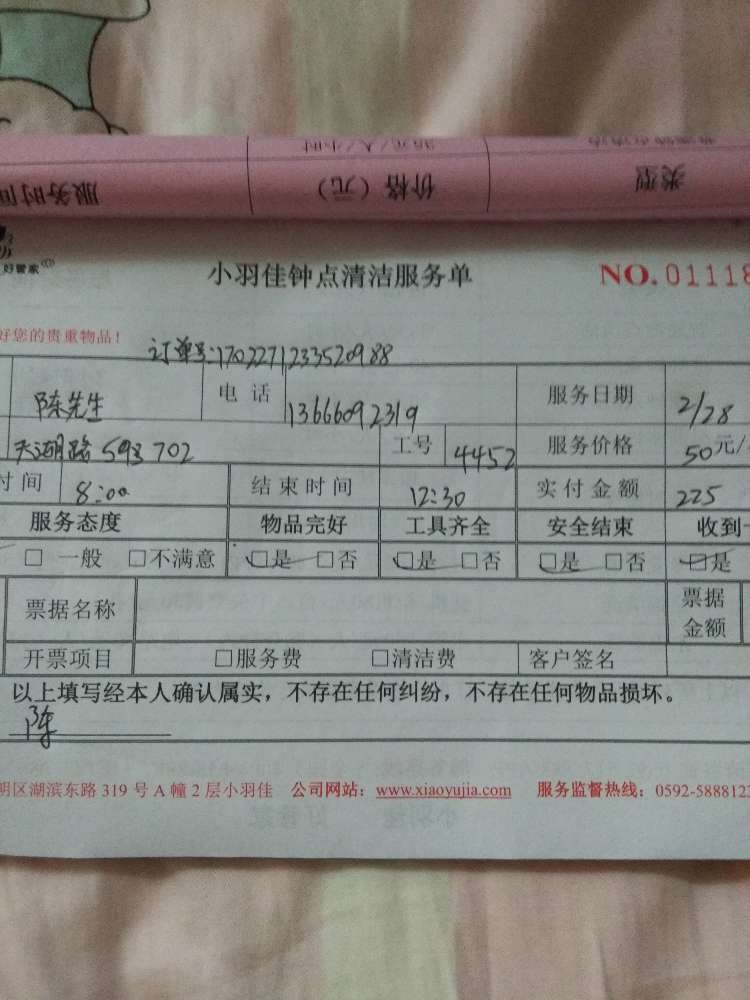 类型 价格（元） 服务时间
好管家
小羽佳钟点清洁服务单 NO.01118
好您的贵重物品！
订单号:1702271233520988
陈先生 电话 13666092319 服务日期 2/28
天湖路593 702 工号 4452 服务价格 50元/
时间 8:00 结束时间 12:30 实付金额 225
服务态度 物品完好 工具齐全 安全结束 收到
□一般 □不满意 □是 □否 □是 □否 □是 □否 □是
票据名称 票据金额
开票项目 □服务费 □清洁费 客户签名
以上填写经本人确认属实，不存在任何纠纷，不存在任何物品损坏。
陈
明区湖滨东路 319 号 A 幢 2 层小羽佳 公司网站：www.xiaoyujia.com 服务监督热线：0592-5888123